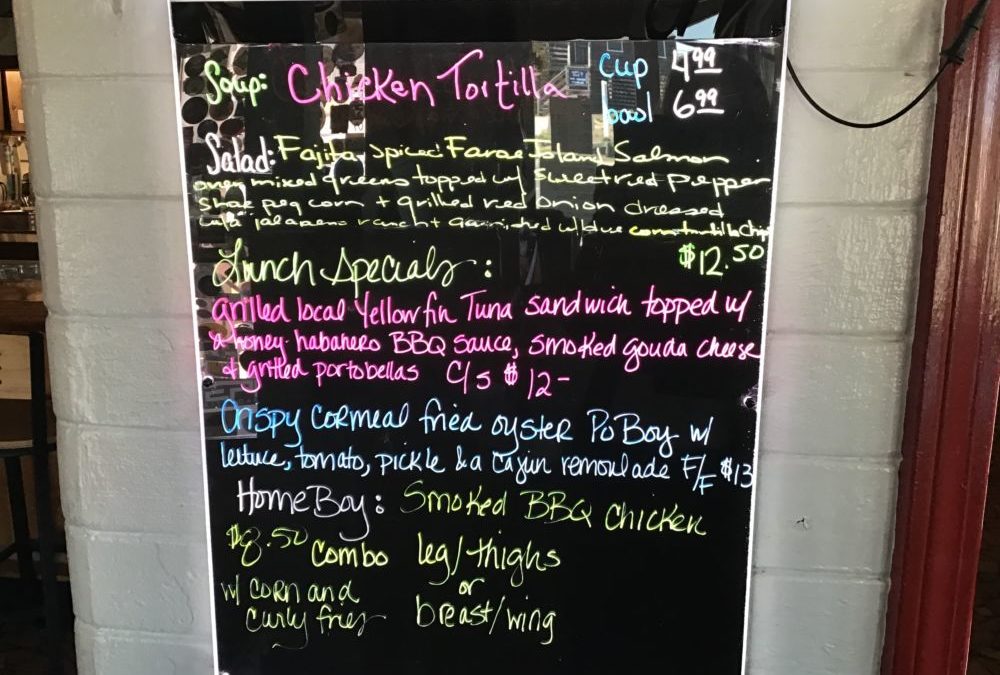 Soup: Chicken Tortilla cup 4.99
bowl 6.99
Salad: Fajita Spiced Faroe Island Salmon
over mixed greens topped w/ sweet red pepper
shoe peg corn + grilled red onion dressed
jalapeno ranch + garnished w/ blue corn tortilla chips
$12.50
Lunch Specials:
Grilled local Yellowfin Tuna sandwich topped w/
a honey-habanero BBQ sauce, smoked gouda cheese
& grilled portobellas C/S $12-
Crispy Cormeal fried oyster PoBoy w/
lettuce, tomato, pickle & a cajun remoulade F/F $13
HomeBoy: Smoked BBQ Chicken
$8.50 combo leg/thighs
or
w/ corn and
curly fries breast/wing